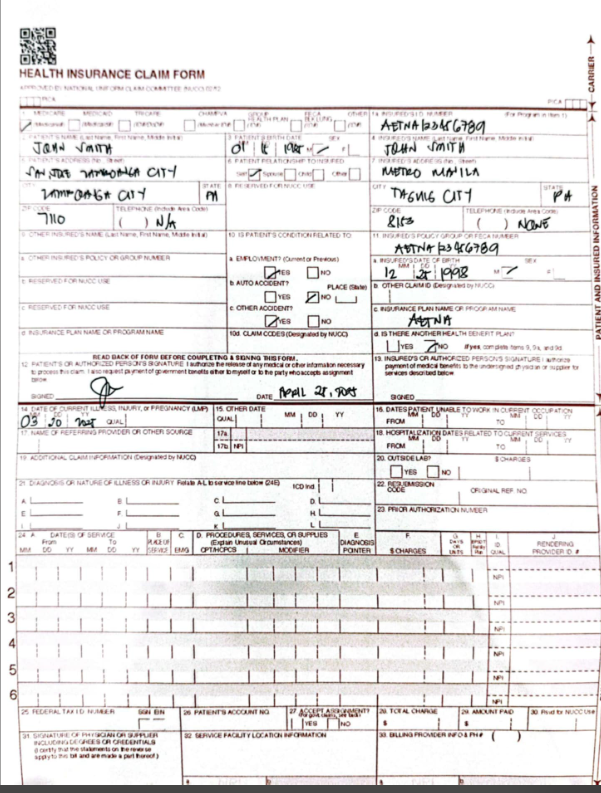 HEALTH INSURANCE CLAIM FORM
APPROVED BY NATIONAL UNIFORM CLAIM COMMITTEE (NUCC) 02/12
PICA
PICA
CARRIER
1. MEDICARE MEDICAID TRICARE CHAMPVA GROUP HEALTH PLAN FECA BLK LUNG OTHER
1a. INSURED'S I.D. NUMBER (For Program in Item 1)
AETNA123456789
2. PATIENT'S NAME (Last Name, First Name, Middle Initial)
JOHN SMITH
3. PATIENT'S BIRTH DATE SEX
MM DD YY
M F
4. INSURED'S NAME (Last Name, First Name, Middle Initial)
JOHN SMITH
5. PATIENT'S ADDRESS (No., Street)
SAN JOSE ZAMBOANGA CITY
6. PATIENT RELATIONSHIP TO INSURED
Self Spouse Child Other
7. INSURED'S ADDRESS (No., Street)
METRO MANILA
CITY
ZAMBOANGA CITY
STATE
8. RESERVED FOR NUCC USE
CITY
TAGUIG CITY
STATE
PH
ZIP CODE
7110
TELEPHONE (Include Area Code)
( ) N/A
ZIP CODE
TELEPHONE (Include Area Code)
( ) NONE
9. OTHER INSURED'S NAME (Last Name, First Name, Middle Initial)
10. IS PATIENT'S CONDITION RELATED TO:
11. INSURED'S POLICY GROUP OR FECA NUMBER
AETNA123456789
a. OTHER INSURED'S POLICY OR GROUP NUMBER
a. EMPLOYMENT? (Current or Previous)
YES NO
a. INSURED'S DATE OF BIRTH SEX
MM DD YY
12 25 1998 M F
b. RESERVED FOR NUCC USE
b. AUTO ACCIDENT? PLACE (State)
YES NO
b. OTHER CLAIM ID (Designated by NUCC)
c. RESERVED FOR NUCC USE
c. OTHER ACCIDENT?
YES NO
c. INSURANCE PLAN NAME OR PROGRAM NAME
AETNA
d. INSURANCE PLAN NAME OR PROGRAM NAME
10d. CLAIM CODES (Designated by NUCC)
d. IS THERE ANOTHER HEALTH BENEFIT PLAN?
YES NO If yes, complete items 9, 9a, and 9d.
PATIENT AND INSURED INFORMATION
READ BACK OF FORM BEFORE COMPLETING & SIGNING THIS FORM.
12. PATIENT'S OR AUTHORIZED PERSON'S SIGNATURE I authorize the release of any medical or other information necessary
to process this claim. I also request payment of government benefits either to myself or to the party who accepts assignment
below.
SIGNED DATE APRIL 28, 2025
13. INSURED'S OR AUTHORIZED PERSON'S SIGNATURE I authorize
payment of medical benefits to the undersigned physician or supplier for
services described below.
SIGNED
14. DATE OF CURRENT ILLNESS, INJURY, or PREGNANCY (LMP)
MM DD YY
03 20 2025 QUAL.
15. OTHER DATE
QUAL. MM DD YY
16. DATES PATIENT UNABLE TO WORK IN CURRENT OCCUPATION
MM DD YY MM DD YY
FROM TO
17. NAME OF REFERRING PROVIDER OR OTHER SOURCE
17a.
17b. NPI
18. HOSPITALIZATION DATES RELATED TO CURRENT SERVICES
MM DD YY MM DD YY
FROM TO
19. ADDITIONAL CLAIM INFORMATION (Designated by NUCC)
20. OUTSIDE LAB? $ CHARGES
YES NO
21. DIAGNOSIS OR NATURE OF ILLNESS OR INJURY Relate A-L to service line below (24E) ICD Ind.
A. B. C. D.
E. F. G. H.
I. J. K. L.
22. RESUBMISSION CODE ORIGINAL REF. NO.
23. PRIOR AUTHORIZATION NUMBER
24. A. DATE(S) OF SERVICE
From To
MM DD YY MM DD YY
B. PLACE OF SERVICE
C. EMG
D. PROCEDURES, SERVICES, OR SUPPLIES
(Explain Unusual Circumstances)
CPT/HCPCS MODIFIER
E. DIAGNOSIS POINTER
F. $ CHARGES
G. DAYS OR UNITS
H. EPSDT Family Plan
I. ID. QUAL.
J. RENDERING PROVIDER ID. #
1 NPI
2 NPI
3 NPI
4 NPI
5 NPI
6 NPI
25. FEDERAL TAX I.D. NUMBER SSN EIN
26. PATIENT'S ACCOUNT NO.
27. ACCEPT ASSIGNMENT?
(For govt. claims, see back)
YES NO
28. TOTAL CHARGE
$
29. AMOUNT PAID
$
30. Rsvd for NUCC Use
31. SIGNATURE OF PHYSICIAN OR SUPPLIER
INCLUDING DEGREES OR CREDENTIALS
(I certify that the statements on the reverse
apply to this bill and are made a part thereof.)
32. SERVICE FACILITY LOCATION INFORMATION
33. BILLING PROVIDER INFO & PH # ( )